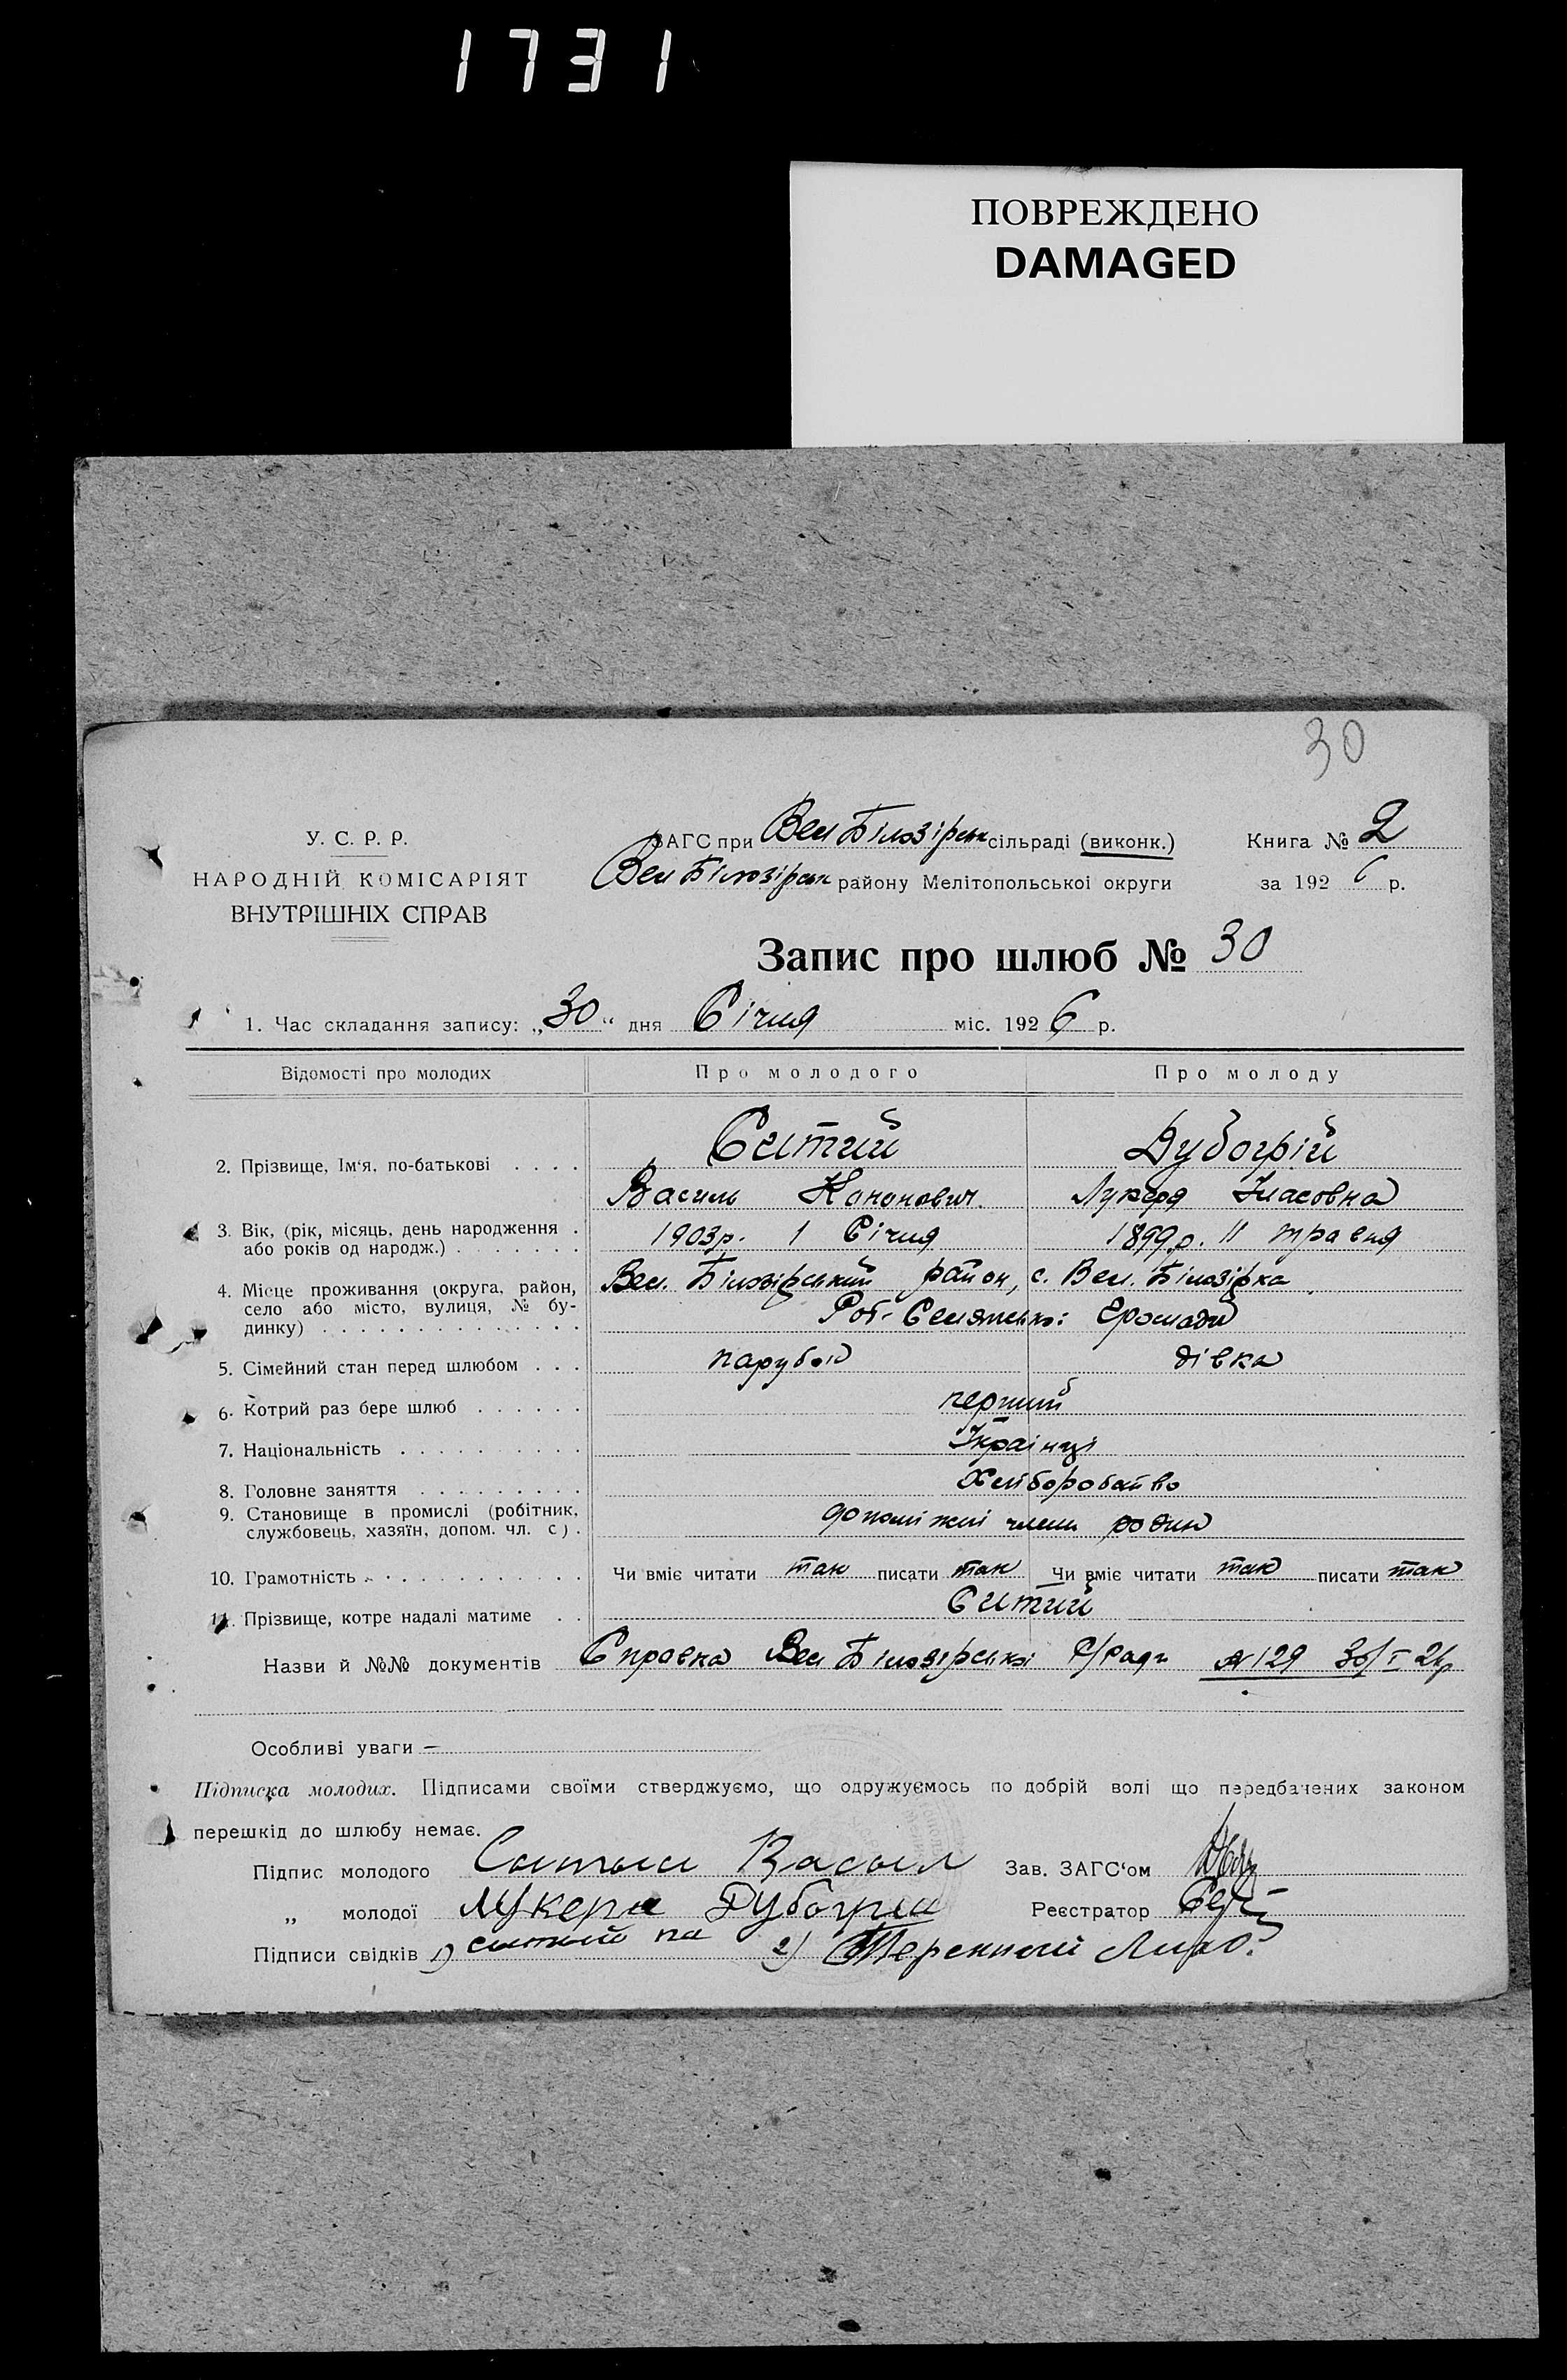 1731
ПОВРЕЖДЕНО
DAMAGED
30
У. С. Р. Р.
НАРОДНІЙ КОМІСАРІЯТ
ВНУТРІШНІХ СПРАВ
ЗАГС при Вел Білозірськ сільраді (виконк.)
Вел Білозірськ району Мелітопольської округи
Книга № 2
за 1926 р.
Запис про шлюб № 30
1. Час складання запису: „30“ дня Січня міс. 1926 р.
Відомості про молодих Про молодого Про молоду
2. Прізвище, Ім'я, по-батькові . . . . Ситий Дубогрій
Василь Кононович. Лукеря Власовна
3. Вік, (рік, місяць, день народження . 1903р. 1 Січня 1899р. 11 травня
або років од народж.) . . . . . . .
4. Місце проживання (округа, район, Вел. Білозірський район, с. Вел. Білозірка
село або місто, вулиця, № бу-
динку) . . . . . . . . . . . . . . Роб-Селянської Громади
5. Сімейний стан перед шлюбом . . . парубок дівка
6. Котрий раз бере шлюб . . . . . . перший
7. Національність . . . . . . . . . . Українці
8. Головне заняття . . . . . . . . . Хліборобство
9. Становище в промислі (робітник,
службовець, хазяїн, допом. чл. с) . допоміжні члени родин
10. Грамотність . . . . . . . . . . . . Чи вміє читати так писати так Чи вміє читати так писати так
11. Прізвище, котре надалі матиме . . Ситий
Назви й №№ документів Справка Вел Білозірської С/Ради №129 30/I 26р
Особливі уваги —
Підписка молодих. Підписами своїми стверджуємо, що одружуємось по добрій волі що передбачених законом
перешкід до шлюбу немає.
Підпис молодого Ситыи Васыл Зав. ЗАГС'ом
„ молодої Лукеря Дубогрий Реєстратор
Підписи свідків 1) ситий 2)